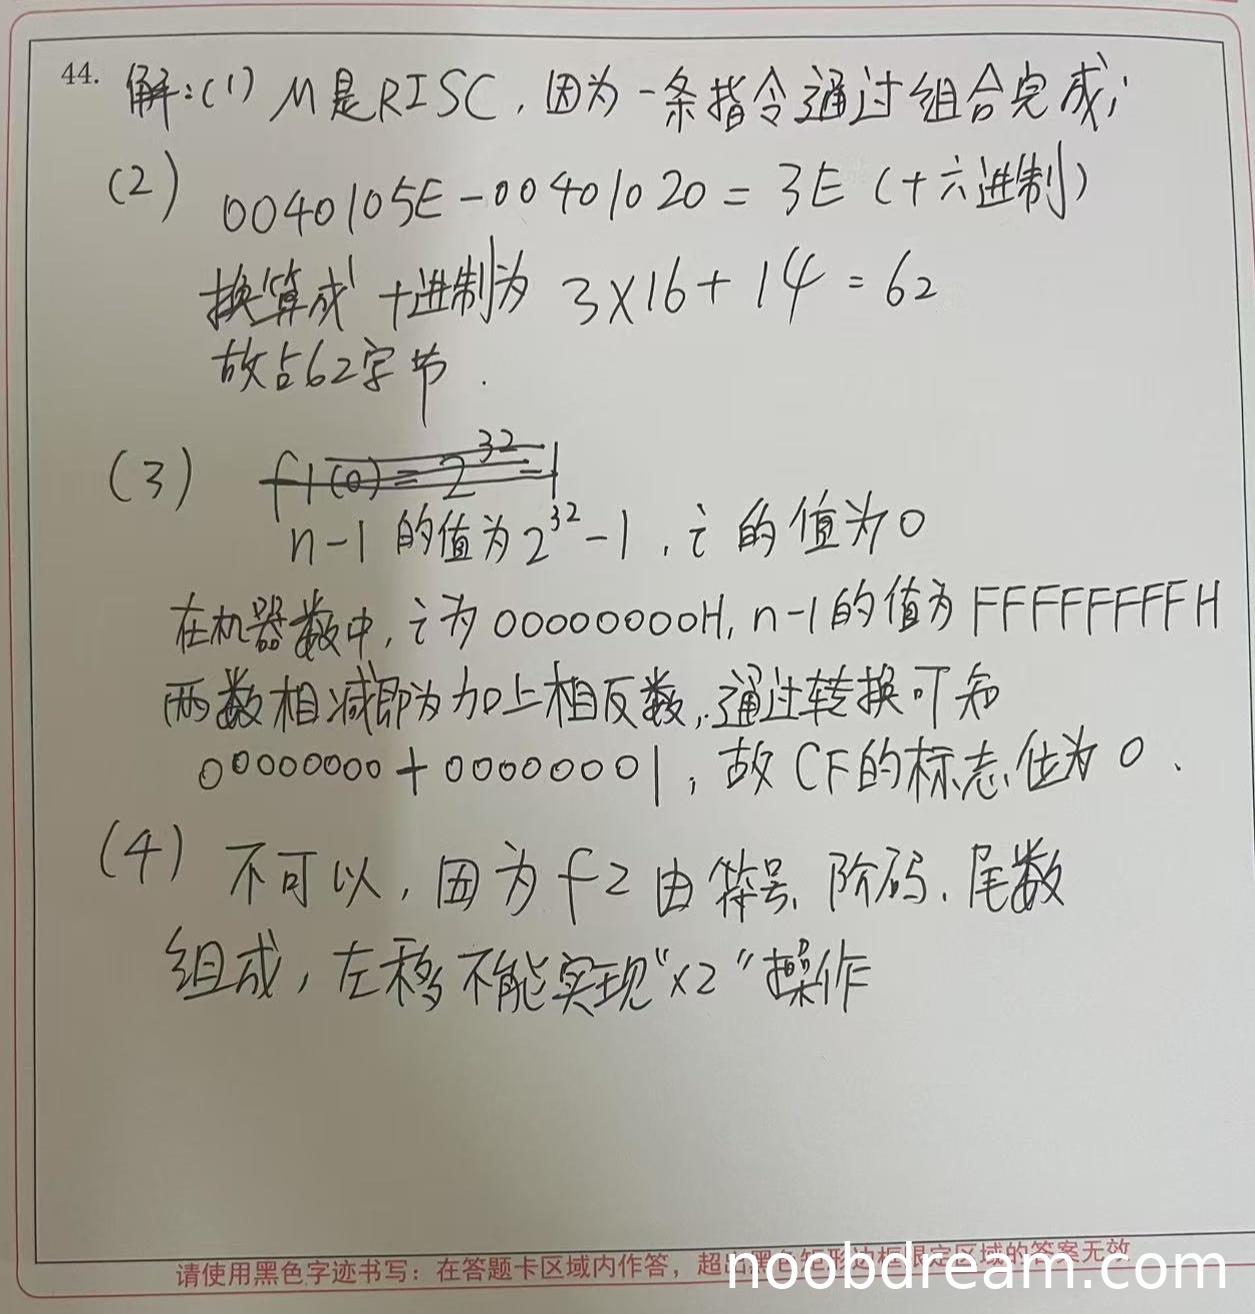 44. 解:(1) M是RISC,因为一条指令通过组合完成;
(2) 0040105E-00401020=3E(十六进制)
换算成十进制为 3×16+14=62
故占62字节.
(3) f1(0)=2^32-1
n-1的值为2^32-1,i的值为0
在机器数中,i为00000000H,n-1的值为FFFFFFFFH
两数相减即为加上相反数,通过转换可知
00000000+00000001,故CF的标志位为0.
(4) 不可以,因为f2由符号、阶码、尾数
组成,左移不能实现“×2”操作
请使用黑色字迹书写:在答题卡区域内作答,超出黑色矩形边框限定区域的答案无效
noobdream.com